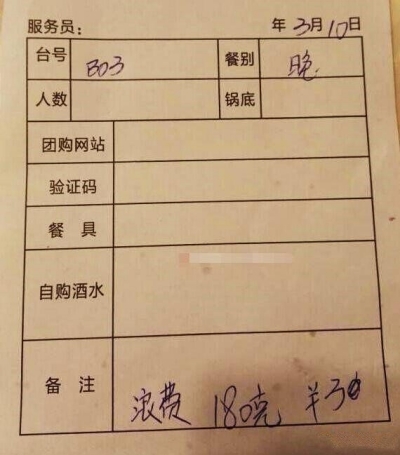 服务员： 年 3月10日
台号 B03 餐别 晚
人数 锅底
团购网站
验证码
餐 具
自购酒水
备 注 浪费 180克 ¥30